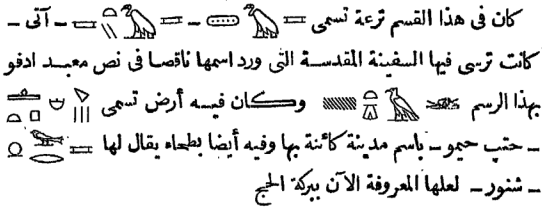 كان فى هذا القسم ترعة تسمى – آتى –
كانت ترسى فيها السفينة المقدسة التى ورد اسمها ناقصا فى نص معبد ادفو
بهذا الرسم وكان فيه أرض تسمى
– حتب حيمو – باسم مدينة كائنة بها وفيه أيضا بطحاء يقال لها
– شنور – لعلها المعروفة الآن ببركة الحج